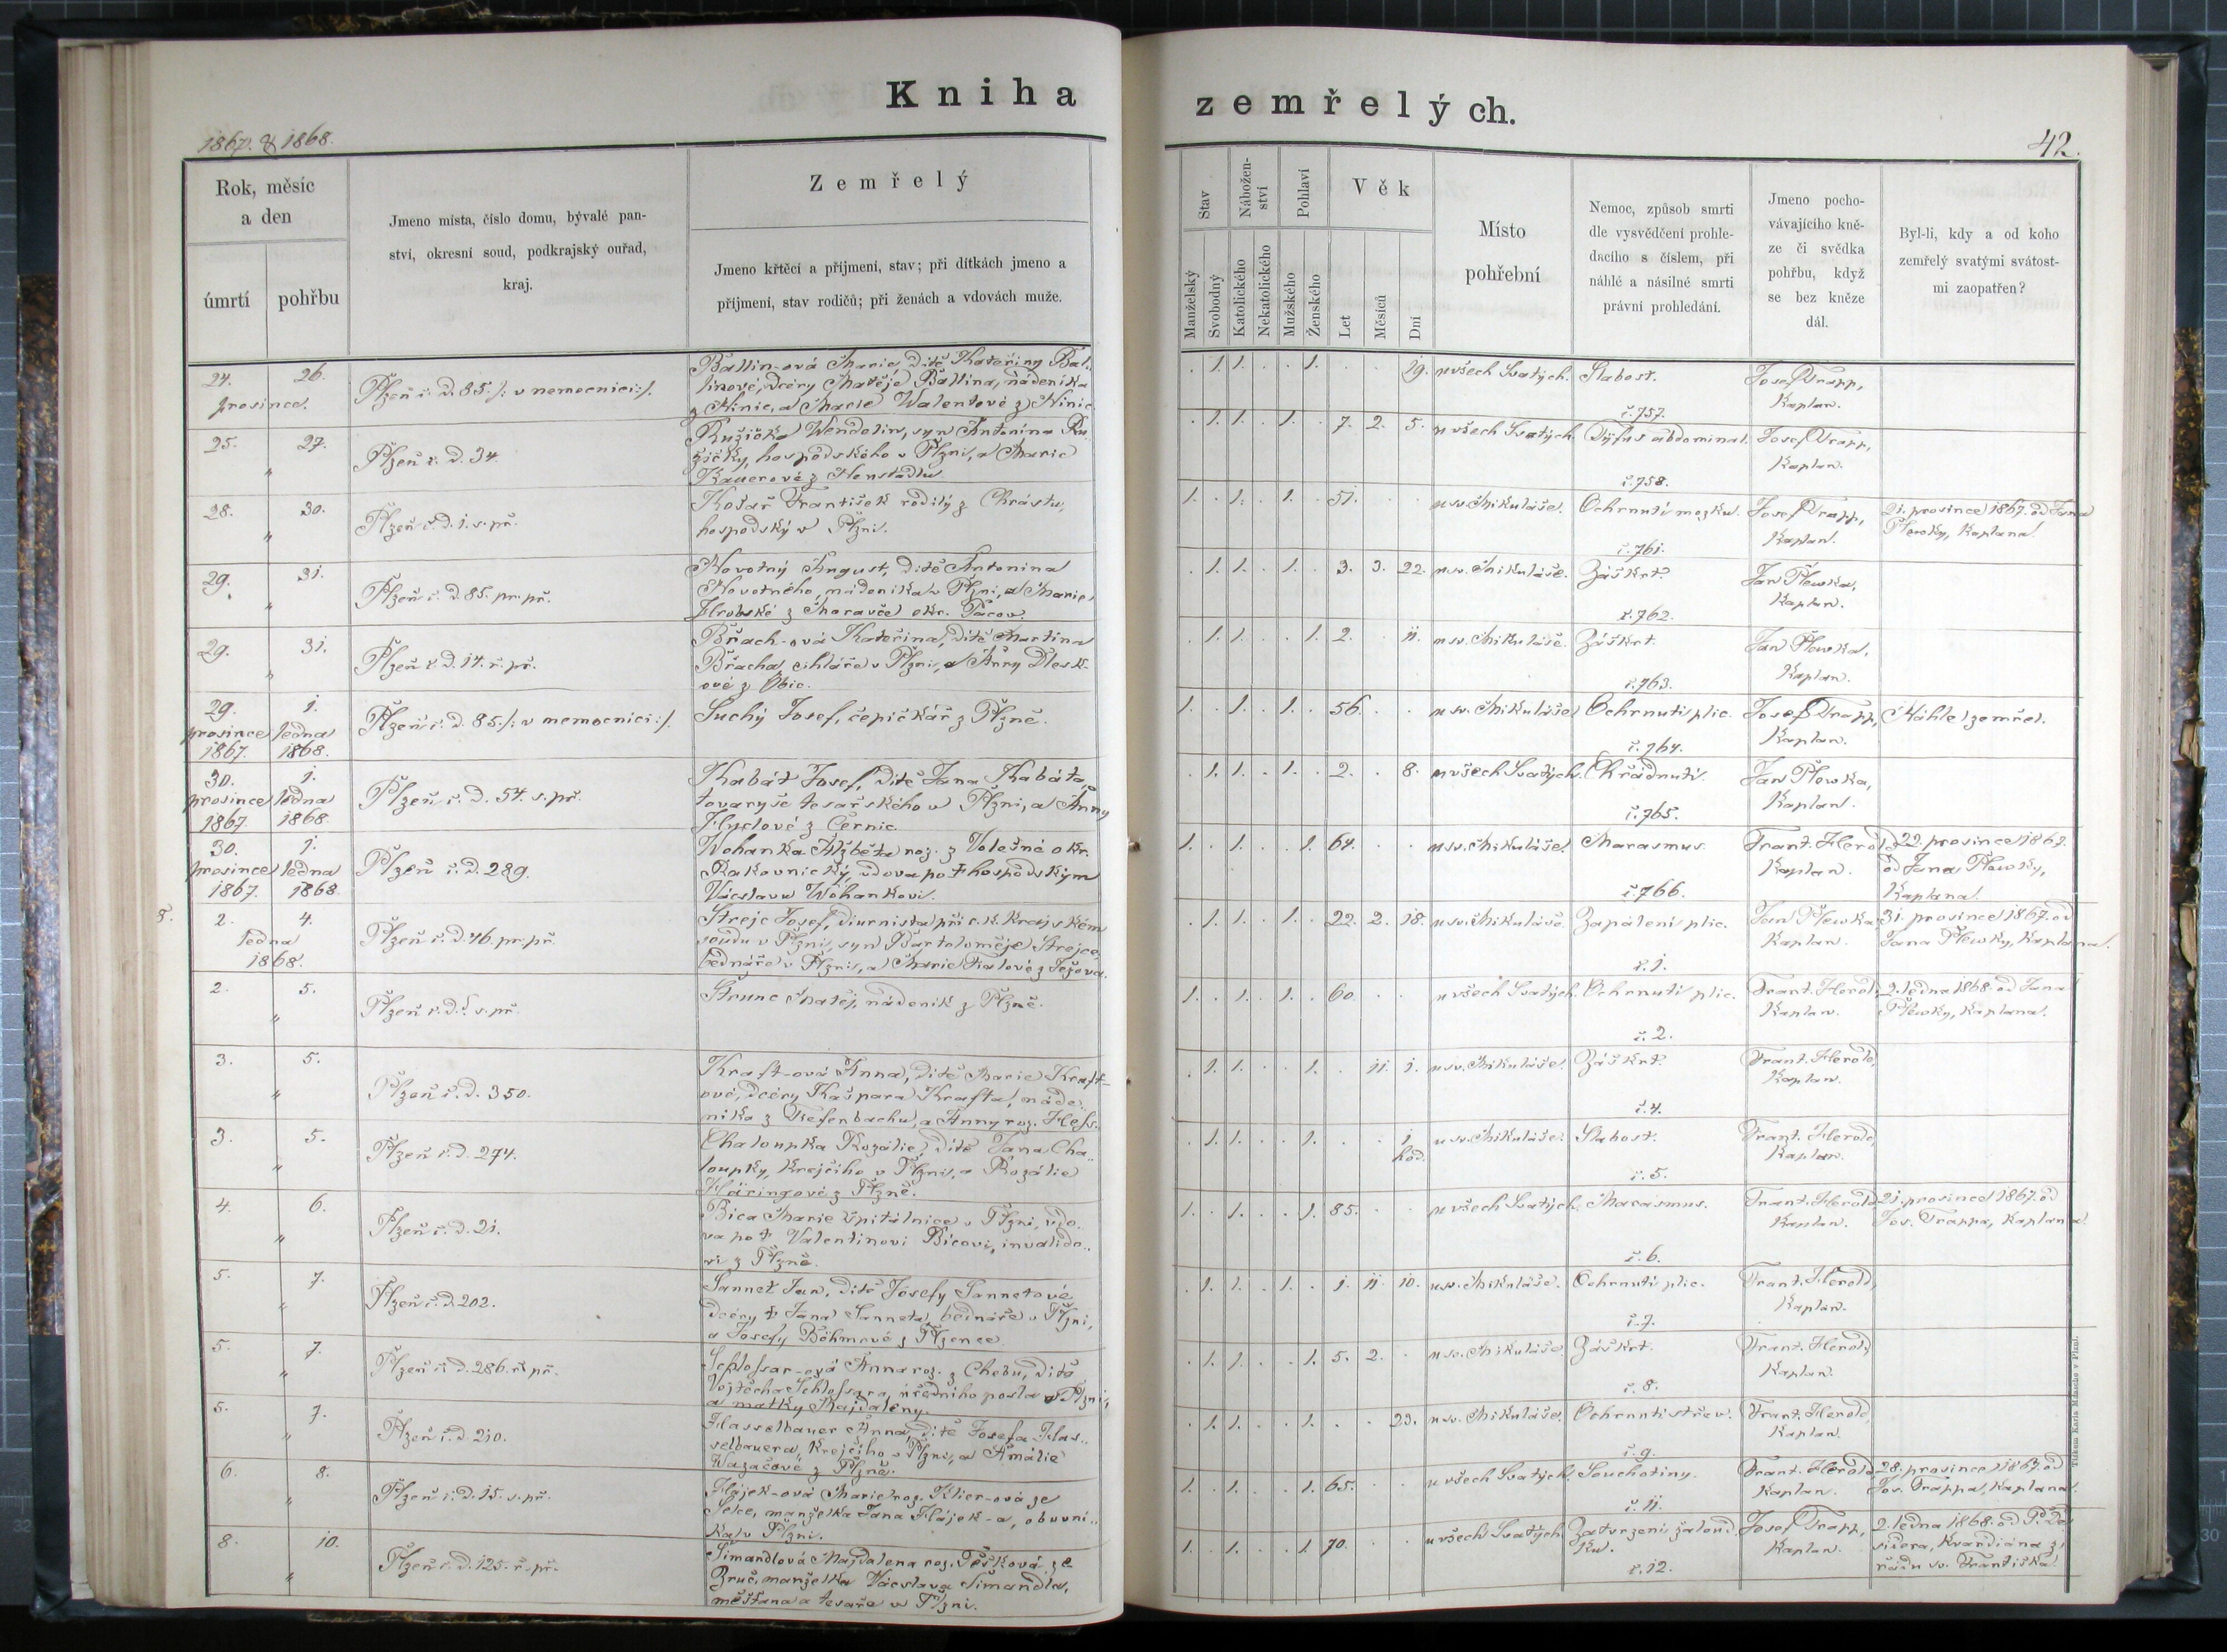 Kniha
zemřelých.
1867. & 1868.
42.
Rok, měsíc
a den
úmrtí
pohřbu
Jmeno místa, číslo domu, bývalé pan-
ství, okresní soud, podkrajský ouřad,
kraj.
Zemřelý
Jmeno křtěcí a příjmení, stav; při dítkách jmeno a
příjmení, stav rodičů; při ženách a vdovách muže.
Stav
Nábožen-
ství
Pohlaví
Věk
Manželský
Svobodný
Katolického
Nekatolického
Mužského
Ženského
Let
Měsíců
Dní
Místo
pohřební
Nemoc, způsob smrti
dle vysvědčení prohle-
dacího s číslem, při
náhlé a násilné smrti
právní prohledání.
Jmeno pocho-
vávajícího kně-
ze či svědka
pohřbu, když
se bez kněze
dál.
Byl-li, kdy a od koho
zemřelý svatými svátost-
mi zaopatřen?
24. 26.
prosince.
Plzeň č. d. 85 /: v nemocnici :/.
Ballin-ová Marie, dítě Kateřiny Bal-
linové, dcéry Matěje Ballina, nádeníka
z Ninic, a Marie Walentové z Ninic
. 1. 1. . . 1. . . 19. u všech Svatých. Slabost.
č. 757.
Josef Trapp,
Kaplan.
25. 27.
"
Plzeň č. d. 34.
Ružička Wendelin, syn Antonína Ru-
žičky, hospodského v Plzni, a Marie
Kauerové z
. 1. 1. . 1. . 7. 2. 5. u všech Svatých. Tyfus abdominal.
č. 758.
Josef Trapp,
Kaplan.
28. 30.
"
Plzeň č. d. 1. s. př.
Košař František rodilý z Chrástu,
hospodský v Plzni.
1. . 1. . 1. . 51. . . u sv. Mikuláše. Ochrnutí mozku.
č. 761.
Josef Trapp,
Kaplan.
21. prosince 1867. od Jana
Plewky, Kaplana.
29. 31.
"
Plzeň č. d. 85. pr. př.
Novotný August, dítě Antonína
Novotného, nádeníka v Plzni, a Marie
Hrobské z Moravče okr. Pacov.
. 1. 1. . 1. . 3. 3. 22. u sv. Mikuláše. Záškrt.
č. 762.
Jan Plewka,
Kaplan.
29. 31.
"
Plzeň č. d. 14. ř. př.
Břach-ová Kateřina, dítě Martina
Břacha, cihláře v Plzni, a Anny Dlesk-
ové z Obic.
. 1. 1. . . 1. 2. . 11. u sv. Mikuláše. Záškrt.
č. 763.
Jan Plewka,
Kaplan.
29. 1.
prosince ledna
1867. 1868.
Plzeň č. d. 85. /: v nemocnici :/.
Suchý Josef, čepičkář z Plzně.
1. . 1. . 1. . 56. . . u sv. Mikuláše. Ochrnutí plic.
č. 764.
Josef Trapp,
Kaplan.
Náhle zemřel.
30. 1.
prosince ledna
1867. 1868.
Plzeň č. d. 54. s. př.
Kabát Josef, dítě Jana Kabáta,
tovaryše tesařského v Plzni, a Anny
z Černic.
. 1. 1. . 1. . 2. . 8. u všech Svatých. Chřadnutí.
č. 765.
Jan Plewka,
Kaplan.
30. 1.
prosince ledna
1867. 1868.
Plzeň č. d. 289.
Wohanka Alžběta roz. z Volešné okr.
Rakovnický, vdova po † hospodským
Václavu Wohankovi.
1. . 1. . . 1. 64. . . u sv. Mikuláše. Marasmus.
č. 766.
Frant. Herold
Kaplan.
22. prosince 1867.
od Jana Plewky,
Kaplana.
2. 4.
ledna
1868.
Plzeň č. d. 46. pr. př.
Strejc Josef, diurnista při c. k. krajském
soudu v Plzni, syn Bartoloměje Strejce,
bednáře v Plzni, a Marie
. 1. 1. . 1. . 22. 2. 18. u sv. Mikuláše. Zapálení plic.
č. 1.
Jan Plewka
Kaplan.
31. prosince 1867. od
Jana Plewky, Kaplana.
2. 5.
"
Plzeň č. d. s. př.
Štrunc Matěj, nádeník z Plzně.
1. . 1. . 1. . 60. . . u všech Svatých. Ochrnutí plic.
č. 2.
Frant. Herold,
Kaplan.
2. ledna 1868. od Jana
Plewky, Kaplana.
3. 5.
"
Plzeň č. d. 350.
Kraft-ová Anna, dítě Marie Kraft-
ové, dcéry Kašpara Krafta, náde-
níka z Tiefenbachu, a Anny roz.
. 1. 1. . . 1. . 11. 1. u sv. Mikuláše. Záškrt.
č. 4.
Frant. Herold,
Kaplan.
3. 5.
"
Plzeň č. d. 274.
Chaloupka Rozálie, dítě Jana Cha-
loupky, krejčího v Plzni, a Rozálie
z Plzně.
. 1. 1. . . 1. . . 1 hod. u sv. Mikuláše. Slabost.
č. 5.
Frant. Herold,
Kaplan.
4. 6.
"
Plzeň č. d. 21.
Bíca Marie špitálnice v Plzni, vdo-
va po † Valentinovi Bícovi, invalido-
vi z Plzně.
1. . 1. . . 1. 85. . . u všech Svatých. Marasmus.
č. 6.
Frant. Herold,
Kaplan.
21. prosince 1867. od
Jos. Trappa, Kaplana.
5. 7.
"
Plzeň č. d. 202.
Sannet Jan, dítě Josefy Sannetové
dcéry † Jana Sanneta, bednáře v Plzni,
a Josefy Böhmové z Plzence.
. 1. 1. . 1. . 1. 11. 10. u sv. Mikuláše. Ochrnutí plic.
č. 7.
Frant. Herold,
Kaplan.
5. 7.
"
Plzeň č. d. 286. ř. př.
Schlossar-ová Anna roz. z Chebu, dítě
Vojtěcha Schlossara, úředního posla v Plzni,
a matky Majdaleny.
. 1. 1. . . 1. 5. 2. . u sv. Mikuláše. Záškrt.
č. 8.
Frant. Herold,
Kaplan.
5. 7.
"
Plzeň č. d. 210.
Hasselbauer Anna, dítě Josefa Has-
selbauera, krejčího v Plzni, a Amálie
z Plzně.
. 1. 1. . . 1. . . 23. u sv. Mikuláše. Ochrnutí střev.
č. 9.
Frant. Herold,
Kaplan.
6. 8.
"
Plzeň č. d. 15. s. př.
Hájek-ová Marie roz. Klier-ová ze
Selce, manželka Jana Hájek-a, obuvní-
ka v Plzni.
1. . 1. . . 1. 65. . . u všech Svatých. Souchotiny.
č. 11.
Frant. Herold,
Kaplan.
28. prosince 1867. od
Jos. Trappa, Kaplana.
8. 10.
"
Plzeň č. d. 125. ř. př.
Šimandlová Majdalena roz. Pešková ze
Zruč, manželka Václava Šimandla,
měšťana a tesaře v Plzni.
1. . 1. . . 1. 70. . . u všech Svatých. Zatvrzení žalud-
ku.
č. 12.
Josef Trapp,
Kaplan.
2. ledna 1868. od P. De-
sidera, Kvardiána z
řádu sv. Františka.
Tiskem Karla Maasche v Plzni.